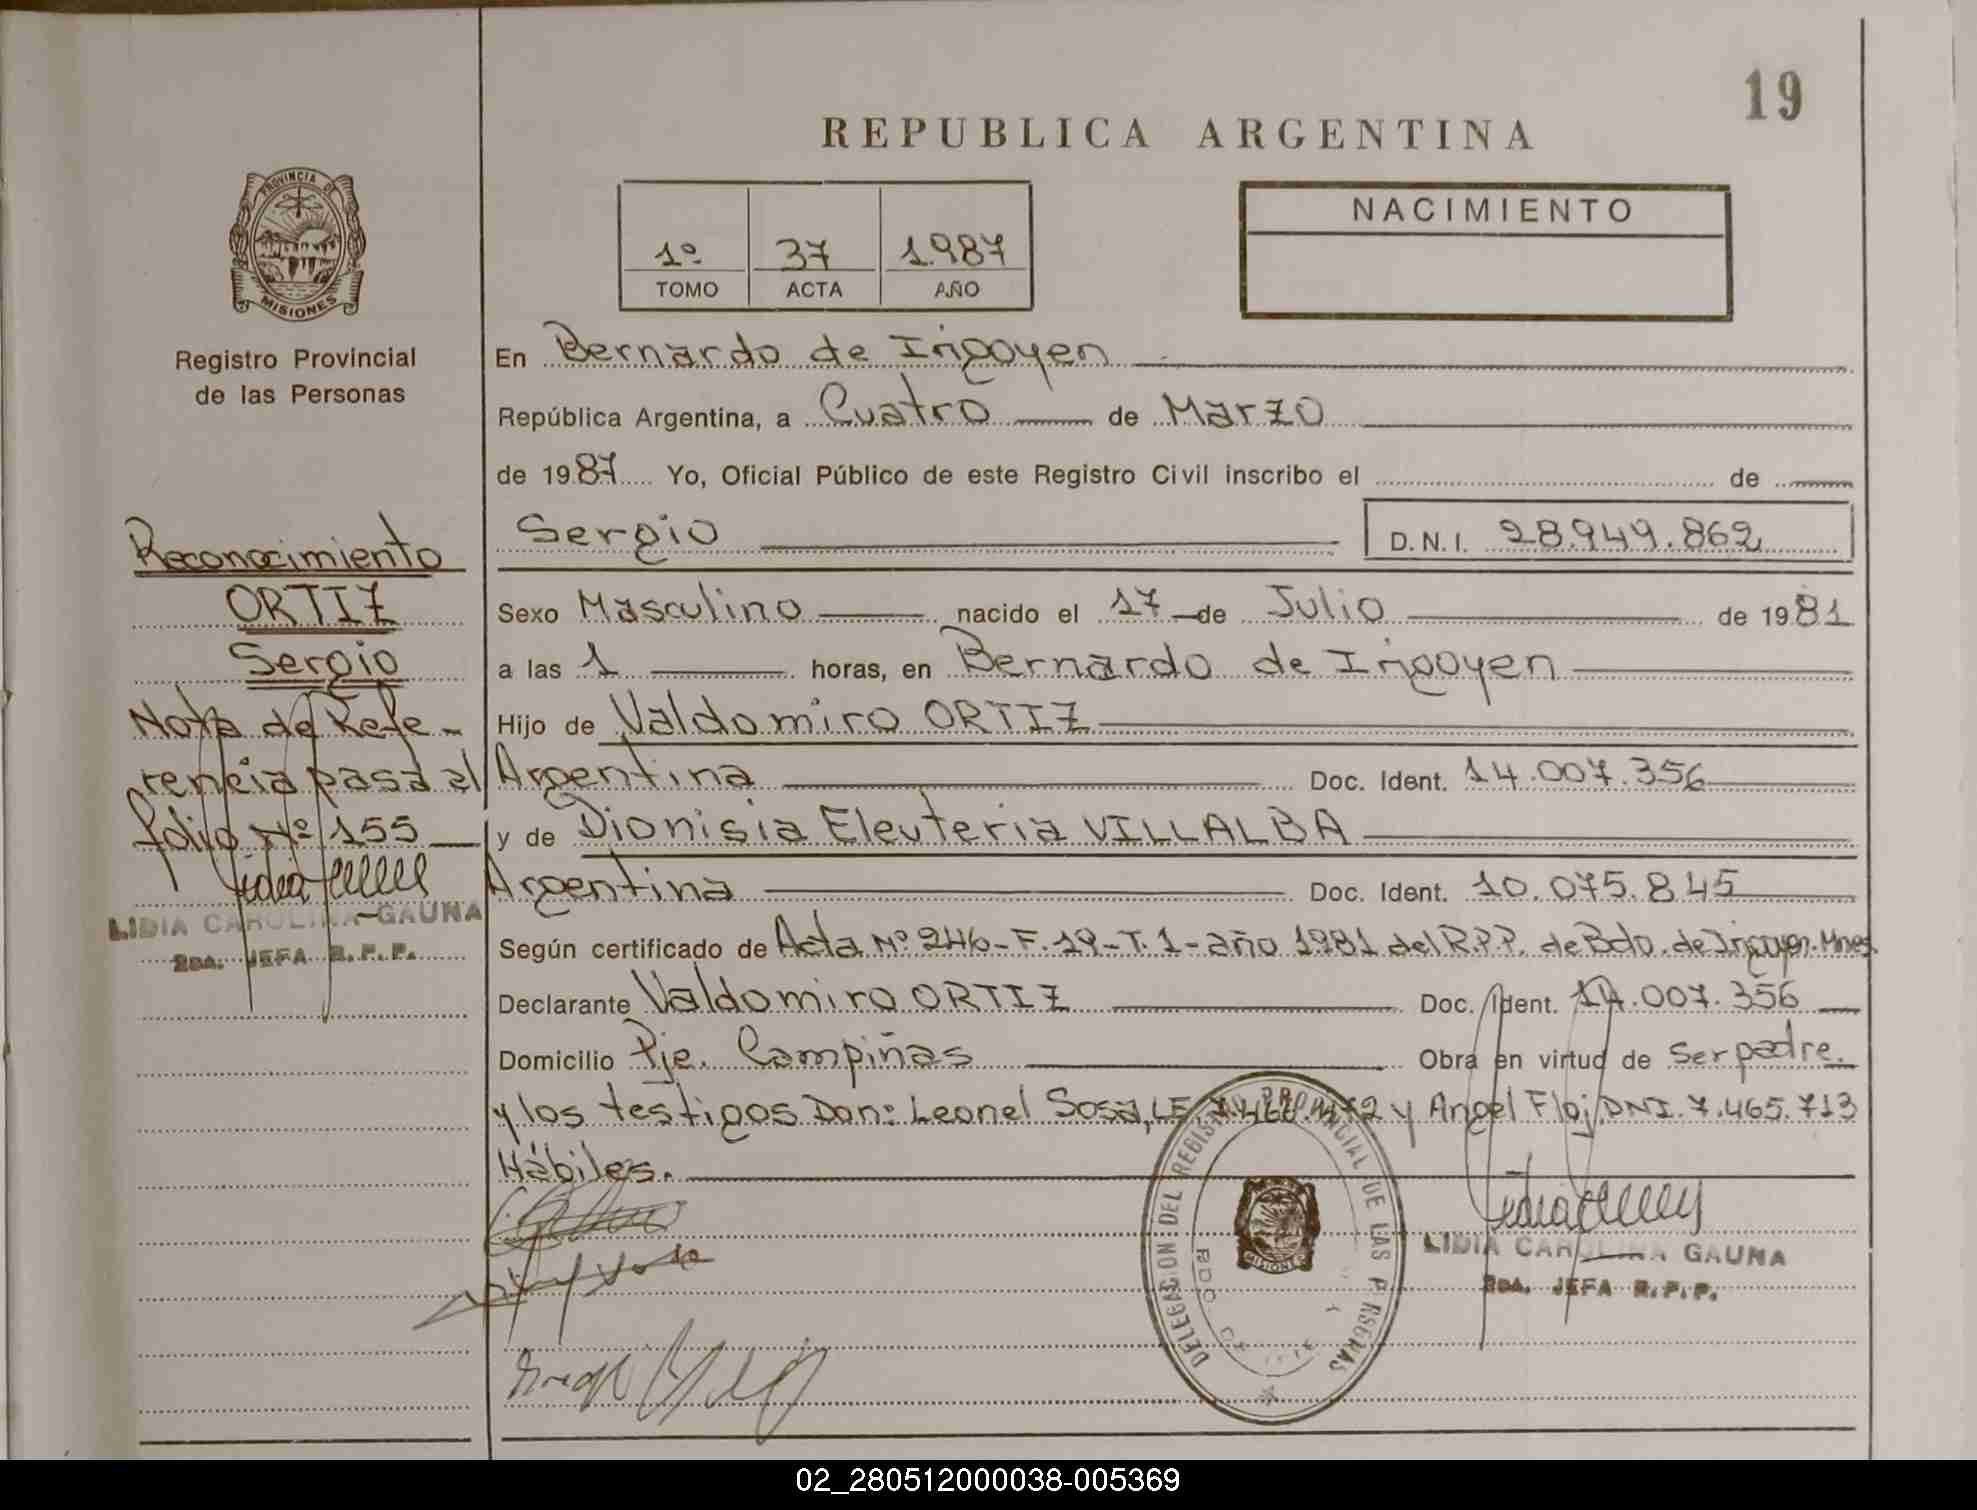 19
REPUBLICA ARGENTINA
PROVINCIA DE
MISIONES
Registro Provincial
de las Personas
1º 37 1.987
TOMO ACTA AÑO
NACIMIENTO
En Bernardo de Irigoyen
República Argentina, a Cuatro de Marzo
de 1987 Yo, Oficial Público de este Registro Civil inscribo el de
Sergio D.N.I. 28.949.862
Sexo Masculino nacido el 17 de Julio de 1981
a las 1 horas, en Bernardo de Irigoyen
Hijo de Valdomiro ORTIZ
Argentina Doc. Ident. 14.007.356
y de Dionisia Eleuteria VILLALBA
Argentina Doc. Ident. 10.075.845
Según certificado de Acta Nº 246-F.19-T.1-año 1981 del R.P.P. de Bdo. de Irigoyen. Mnes.
Declarante Valdomiro ORTIZ Doc. Ident. 14.007.356
Domicilio Pje. Campiñas Obra en virtud de ser padre.
y los testigos Don: Leonel Sosa, LE. y Angel Floj, DNI. 7.465.713
Hábiles.
Reconocimiento
ORTIZ
Sergio
Nota de Refe-
rencia pasa al
folio Nº 155
LIDIA CAROLINA GAUNA
2DA. JEFA R.P.P.
DELEGACION DEL REGISTRO PROVINCIAL DE LAS PERSONAS
BDO. DE
MISIONES
LIDIA CAROLINA GAUNA
2DA. JEFA R.P.P.
02_280512000038-005369